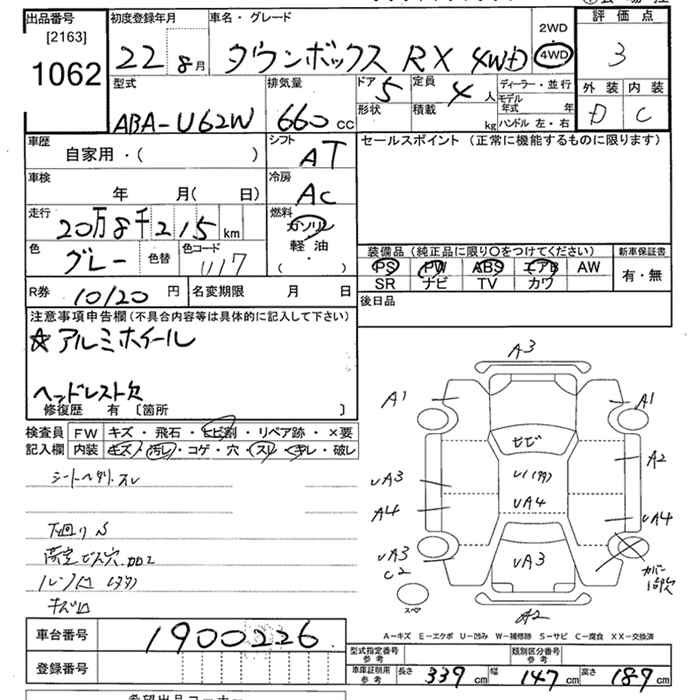 出品番号 初度登録年月 車名・グレード 2WD 評価点
[2163] 22 8月 タウンボックス RX 4WD 4WD 3
1062
型式 排気量 ドア 5 定員 4人 ディーラー・並行 外装 内装
ABA-U62W 660cc 形状 積載 kg モデル年式 年 D C
ハンドル 左・右
車歴 シフト セールスポイント (正常に機能するものに限ります)
自家用・( ) AT
車検 冷房
年 月( 日) AC
走行 燃料
20万8千215km ガソリン
色 色替 色コード 軽油 装備品 (純正品に限り○をつけてください) 新車保証書
グレー 1117 ( ・ ) PS PW ABS エアB AW 有・無
SR ナビ TV カワ
R券 10120円 名変期限 月 日 後日品
注意事項申告欄(不具合内容等は具体的に記入して下さい)
☆アルミホイール
ヘッドレスト欠
修復歴 有 [箇所 ]
検査員 FW キズ・飛石・ヒビ割・リペア跡・×要
記入欄 内装 キズ・汚レ・コゲ・穴・スレ・キレ・破レ
シートヘタリ.スレ
下廻りS
キズ凹
A3
A1 A1
ヒビ
A2
UA3
UA4
A4 UA4
UA3 UA3
C2
カバー
1ヶ欠
スペア
A2
A-キズ E-エクボ U-凹み W-補修跡 S-サビ C-腐食 XX-交換済
車台番号 1900226
登録番号
型式指定番号 参考 類別区分番号 参考
車庫証明用 参考 長さ 339cm 幅 147cm 高さ 189cm
希望出品コーナー